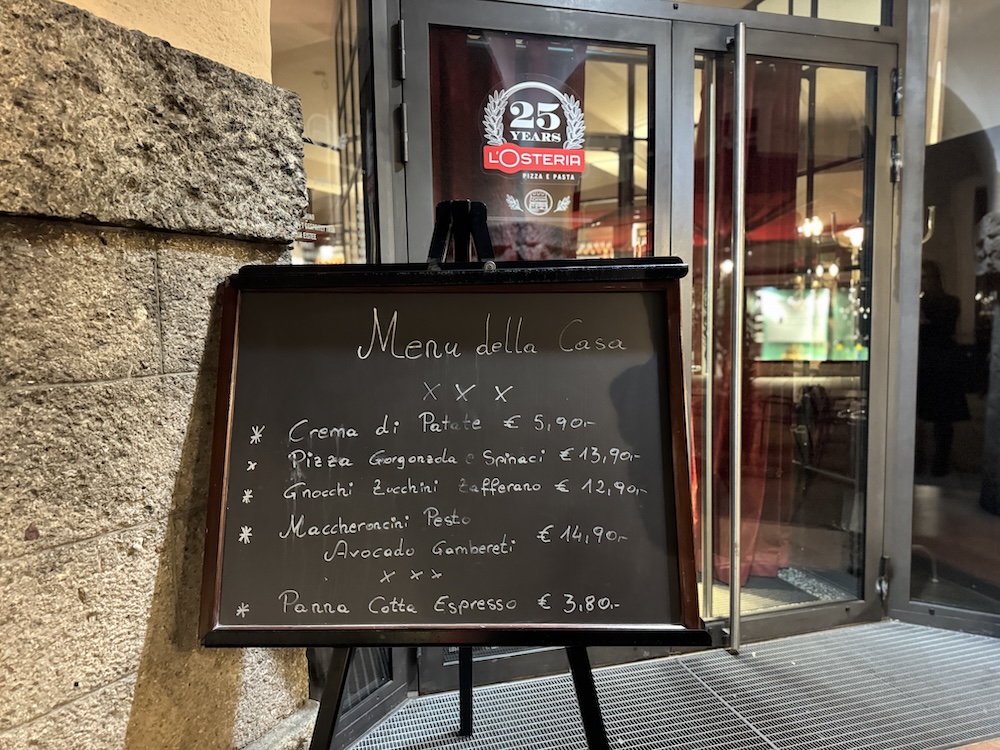 25
YEARS
L'OSTERIA
PIZZA E PASTA
Menu della Casa
x x x
* Crema di Patate € 5,90.-
* Pizza Gorgonzola e Spinaci € 13,90.-
* Gnocchi Zucchini Zafferano € 12,90.-
* Maccheroncini Pesto
Avocado Gambereti € 14,90.-
x x x
* Panna Cotta Espresso € 3,80.-